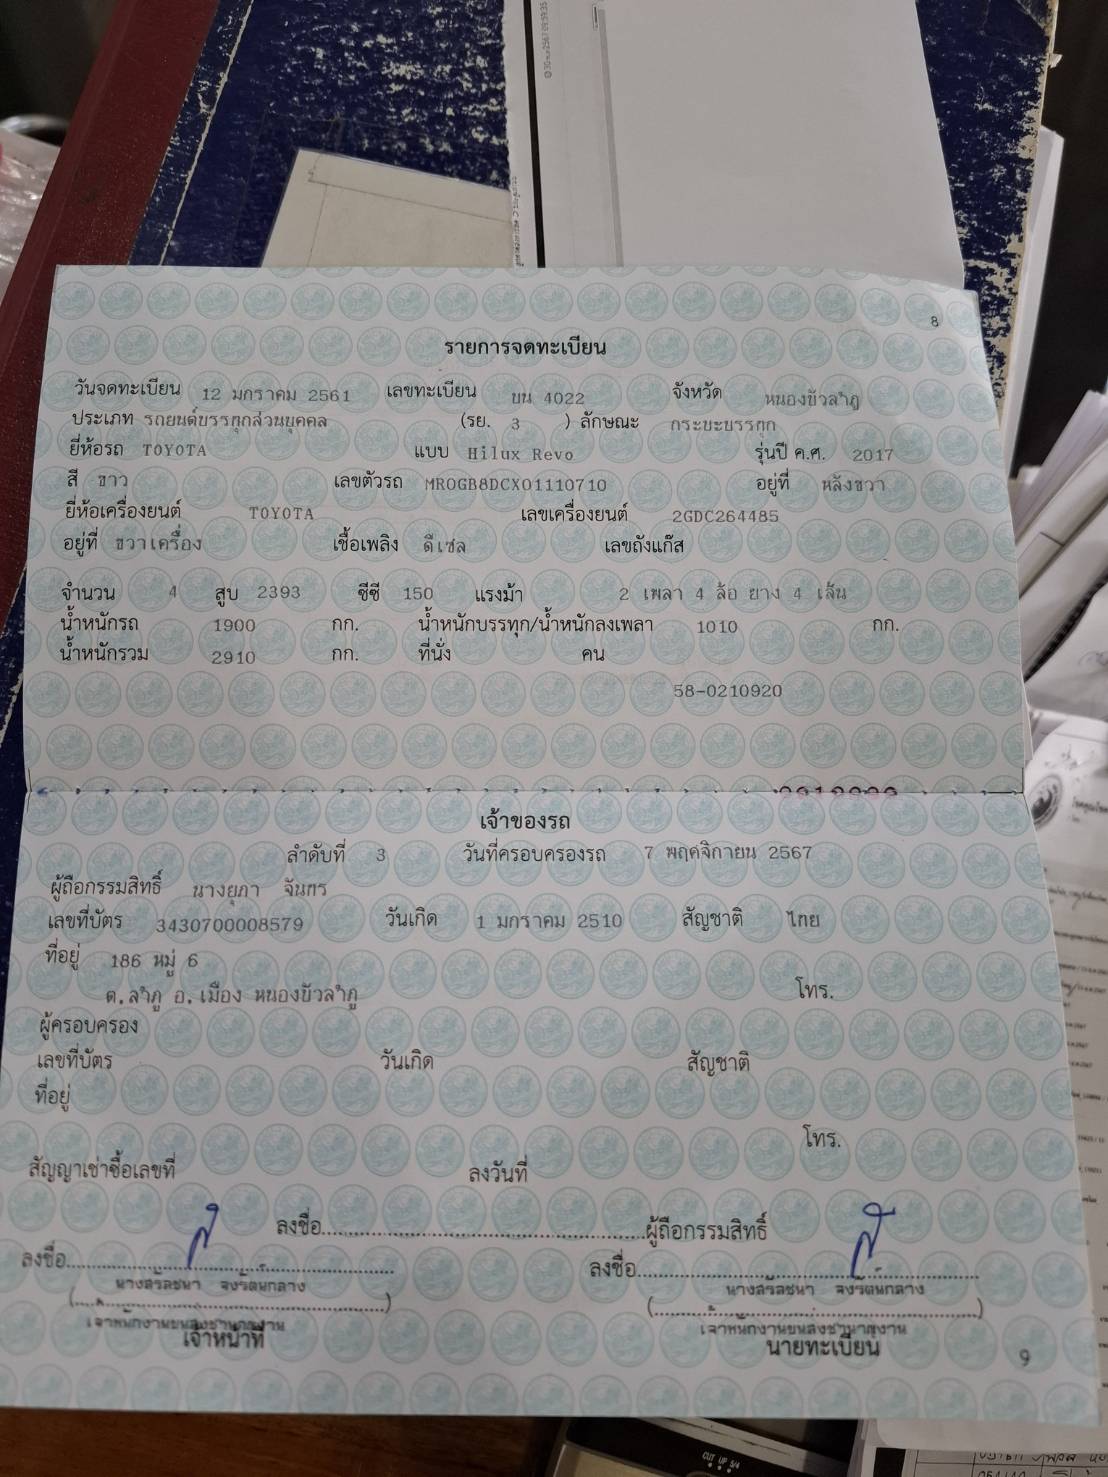 8
รายการจดทะเบียน
วันจดทะเบียน 12 มกราคม 2561 เลขทะเบียน บน 4022 จังหวัด หนองบัวลำภู
ประเภท รถยนต์บรรทุกส่วนบุคคล (รย. 3 ) ลักษณะ กระบะบรรทุก
ยี่ห้อรถ TOYOTA แบบ Hilux Revo รุ่นปี ค.ศ. 2017
สี ขาว เลขตัวรถ MR0GB8DCX01110710 อยู่ที่ หลังขวา
ยี่ห้อเครื่องยนต์ TOYOTA เลขเครื่องยนต์ 2GDC264485
อยู่ที่ ขวาเครื่อง เชื้อเพลิง ดีเซล เลขถังแก๊ส
จำนวน 4 สูบ 2393 ซีซี 150 แรงม้า 2 เพลา 4 ล้อ ยาง 4 เส้น
น้ำหนักรถ 1900 กก. น้ำหนักบรรทุก/น้ำหนักลงเพลา 1010 กก.
น้ำหนักรวม 2910 กก. ที่นั่ง คน
58-0210920
เจ้าของรถ
ลำดับที่ 3 วันที่ครอบครองรถ 7 พฤศจิกายน 2567
ผู้ถือกรรมสิทธิ์ นางยุภา จันทร
เลขที่บัตร 3430700008579 วันเกิด 1 มกราคม 2510 สัญชาติ ไทย
ที่อยู่ 186 หมู่ 6
ต.ลำภู อ.เมือง หนองบัวลำภู โทร.
ผู้ครอบครอง
เลขที่บัตร วันเกิด สัญชาติ
ที่อยู่
โทร.
สัญญาเช่าซื้อเลขที่ ลงวันที่
ลงชื่อ ผู้ถือกรรมสิทธิ์
ลงชื่อ ลงชื่อ
เจ้าพนักงานขนส่งชำนาญงาน เจ้าพนักงานขนส่งชำนาญงาน
เจ้าหน้าที่ นายทะเบียน
9
CUT UP 5/4